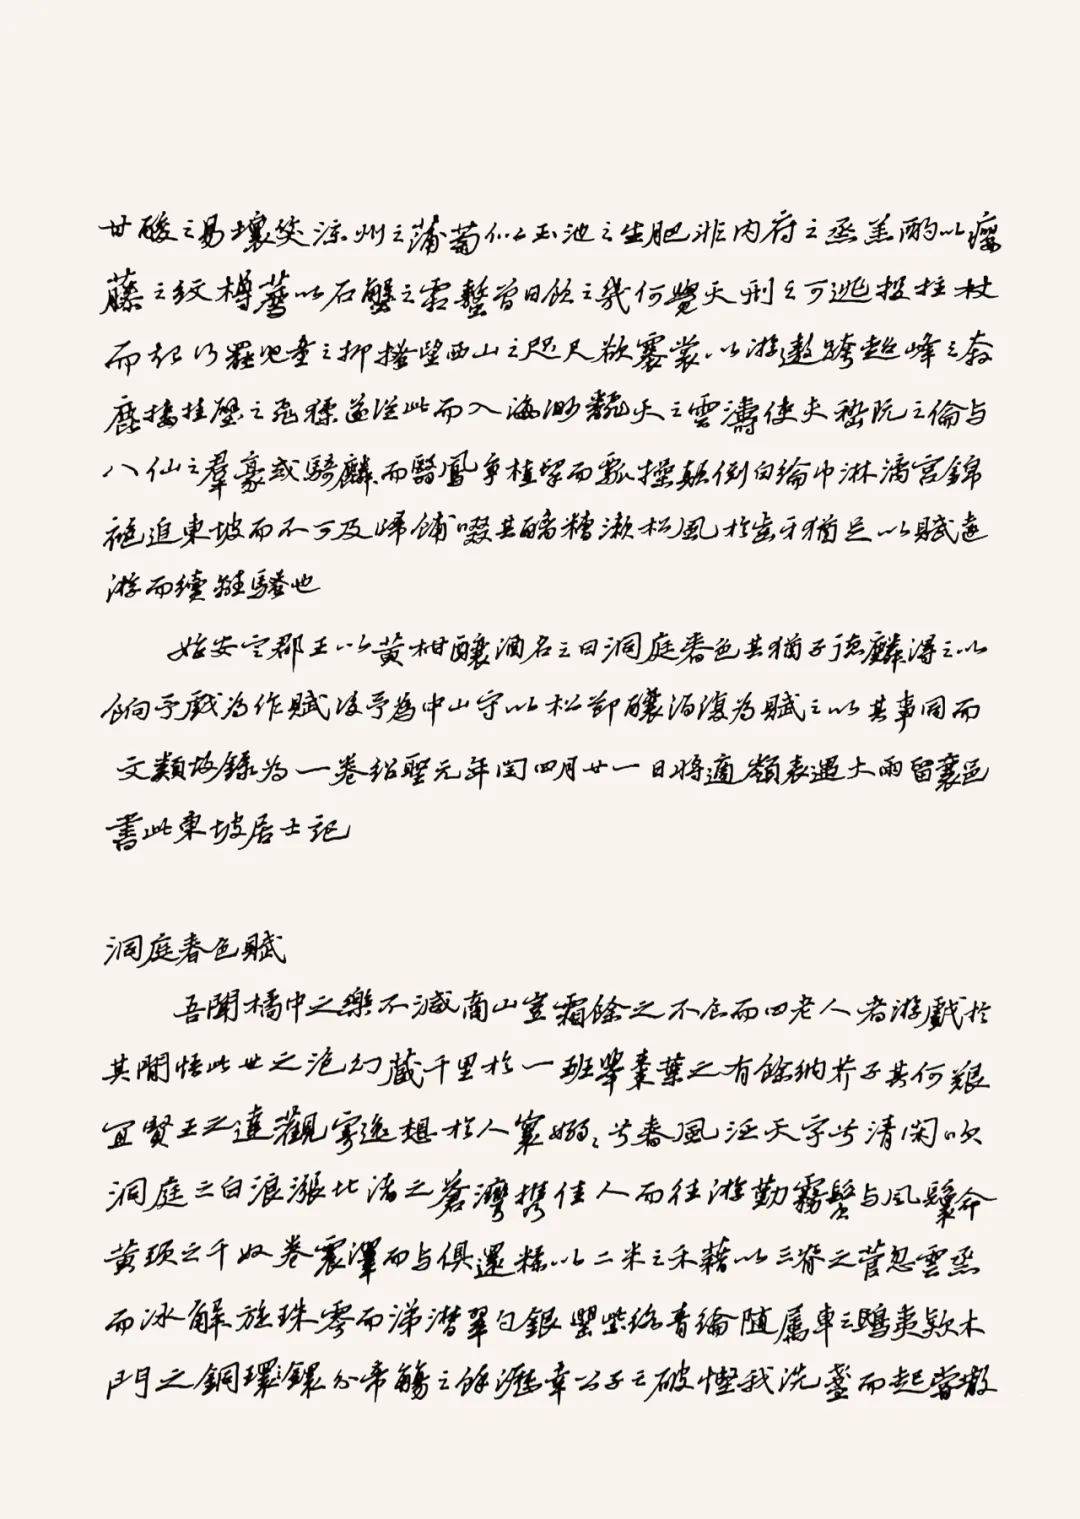 甘酸之易壞笑涼州之蒲萄似玉池之生肥非内府之烝羔酌以癭
藤之紋樽薦以石蟹之霜螯曾日飲之幾何覺天刑之可逃投拄杖
而起行罷兒童之抑搔望西山之咫尺欲褰裳以游遨跨超峰之奔
鹿接挂壁之飛猱遂從此而入海渺翻天之雲濤使夫嵇阮之倫与
八仙之羣豪或騎麟而翳鳳爭榼挈而瓢操顛倒白綸巾淋漓宮錦
袍追東坡而不可及歸餔啜其醨糟漱松風於齒牙猶足以賦遠
游而續離騷也
始安定郡王以黄柑釀酒名之曰洞庭春色其猶子德麟得之以
餉予戲為作賦後予為中山守以松節釀酒復為賦之以其事同而
文類故錄為一卷紹聖元年閏四月廿一日將適嶺表遇大雨留襄邑
書此東坡居士記
洞庭春色賦
吾聞橘中之樂不減商山豈霜餘之不食而四老人者游戲於
其間悟此世之泡幻藏千里於一班舉棗葉之有餘納芥子其何艱
宜賢王之達觀寄逸想於人寰嫋嫋兮春風泛天宇兮清閑吹
洞庭之白浪漲北渚之蒼灣攜佳人而往游勤霧鬢与風鬟命
黄頭之千奴卷震澤而与俱還糅以二米之禾藉以三脊之菅忽雲烝
而冰解旋珠零而涕潸翠勺銀罌紫絡青綸隨屬車之鴟夷款木
門之銅鐶分帝觴之餘瀝幸公子之破慳我洗盞而起嘗散